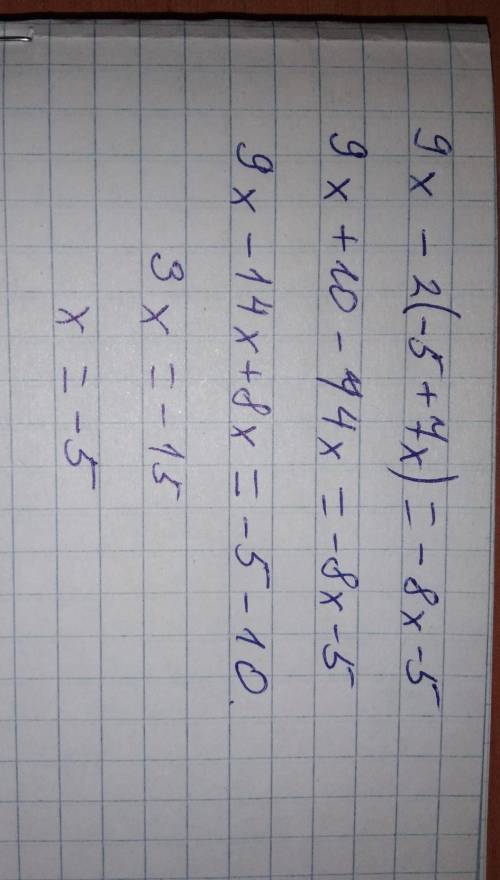 9x - 2(-5 + 7x) = -8x - 5
9x + 10 - 14x = -8x - 5
9x - 14x + 8x = -5 - 10.
3x = -15
x = -5